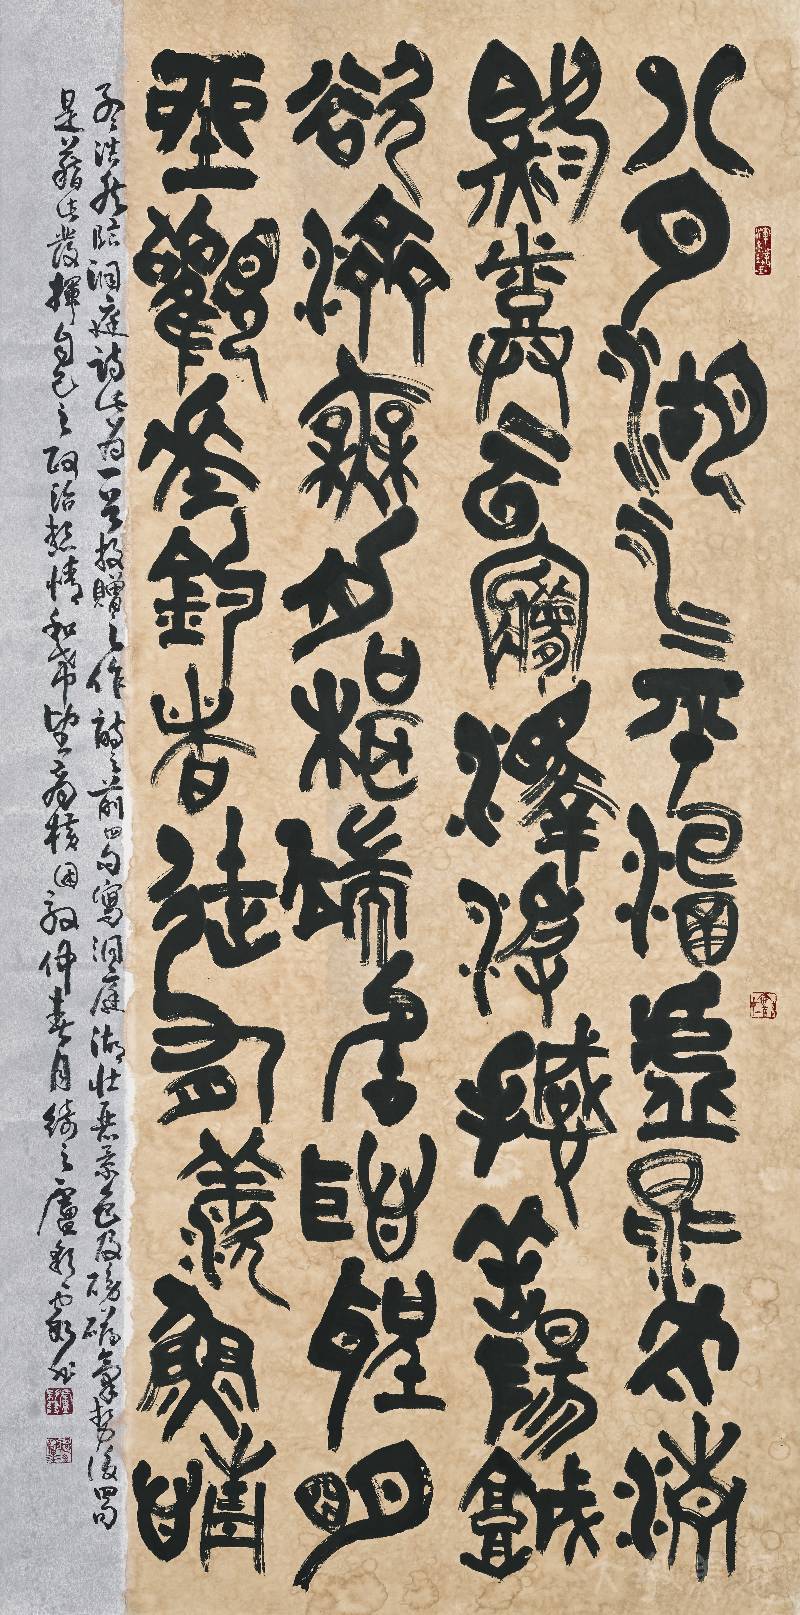 八月湖水平涵虛混太清
氣蒸云夢澤波撼岳陽城
欲濟無舟楫端居耻聖明
坐觀垂釣者徒有羨魚情
孟浩然臨洞庭詩此為一首投贈之作詩之前四句寫洞庭湖壯麗景色及磅礴氣勢後四句
是藉此發揮自己之政治熱情和希望商橫困敦仲春月綺之盧